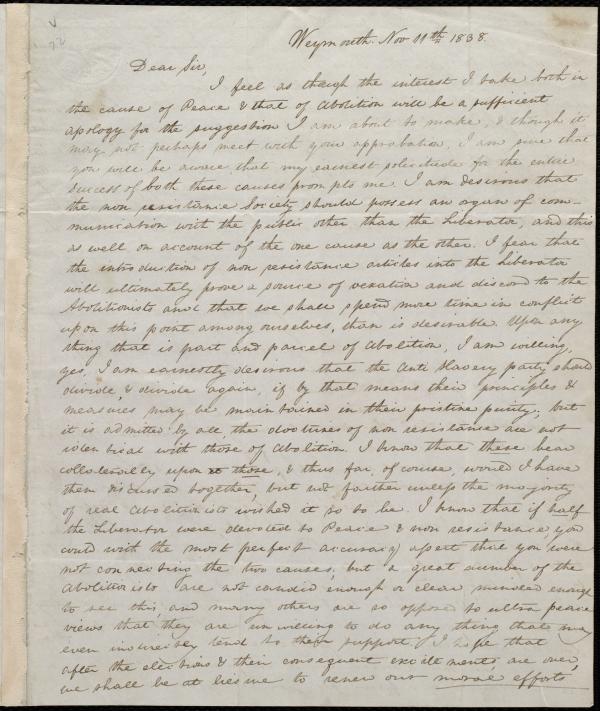 Weymouth Nov 11th 1838.
Dear Sir,
I feel as though the interest I take both in
the cause of Peace & that of Abolition will be a sufficient
apology for the suggestion I am about to make, & though it
may not perhaps meet with your approbation, I am sure that
you will be aware that my earnest solicitude for the entire
success of both these causes prompts me. I am desirous that
the non resistance Society should possess an organ of com-
munication with the public other than the Liberator, and this
as well on account of the one cause as the other. I fear that
the introduction of non resistance articles into the Liberator
will ultimately prove a source of vexation and discord to the
Abolitionists and that we shall spend more time in conflict
upon this point among ourselves, than is desirable. Upon any
thing that is part and parcel of Abolition, I am willing,
yes, I am earnestly desirous that the Anti Slavery party should
divide, & divide again, if by that means their principles &
measures may be maintained in their pristine purity; but
it is admitted by all the doctrines of non resistance are not
identical with those of Abolition. I know that these bear
collaterally upon those, & thus far, of course, would I have
them discussed together, but not farther unless the majority
of real Abolitionists wished it so to be. I know that if half
the Liberator were devoted to Peace & non resistance, you
could with the most perfect accuracy assert that you were
not connecting the two causes, but a great number of the
Abolitionists are not candid enough or clear minded enough
to see this, and many others are so opposed to ultra peace
views that they are unwilling to do any thing that may
even indirectly tend to their support. I hope that
after the elections & their consequent excitements are over,
we shall be at leisure to renew our moral efforts